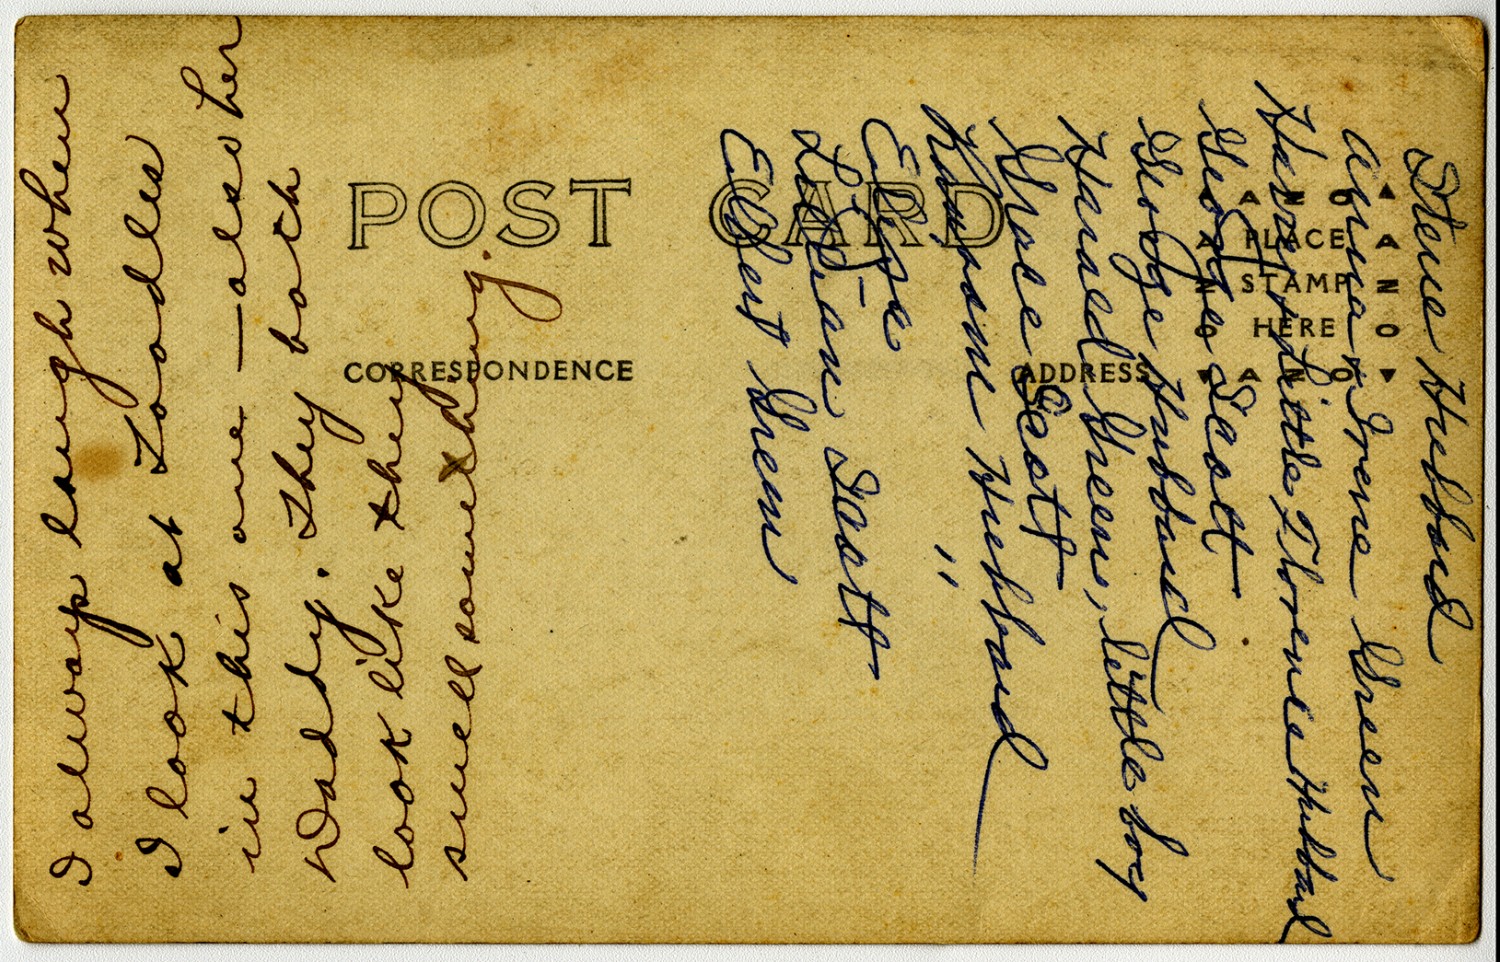 I always laugh when
I look at Toodles
in this one — also her
Daddy. They both
look like they
smell something.
POST CARD
CORRESPONDENCE
ADDRESS
PLACE
STAMP
HERE
AZO
AZO
AZO
AZO
Steve Hubbard
Anna Irene Green
Harry, Little Florence Hubbard
George Scott
George Hubbard
Harold Green, little boy
Grace Scott
Hubbard
Elsie "
Lillian Scott
Elbert Green